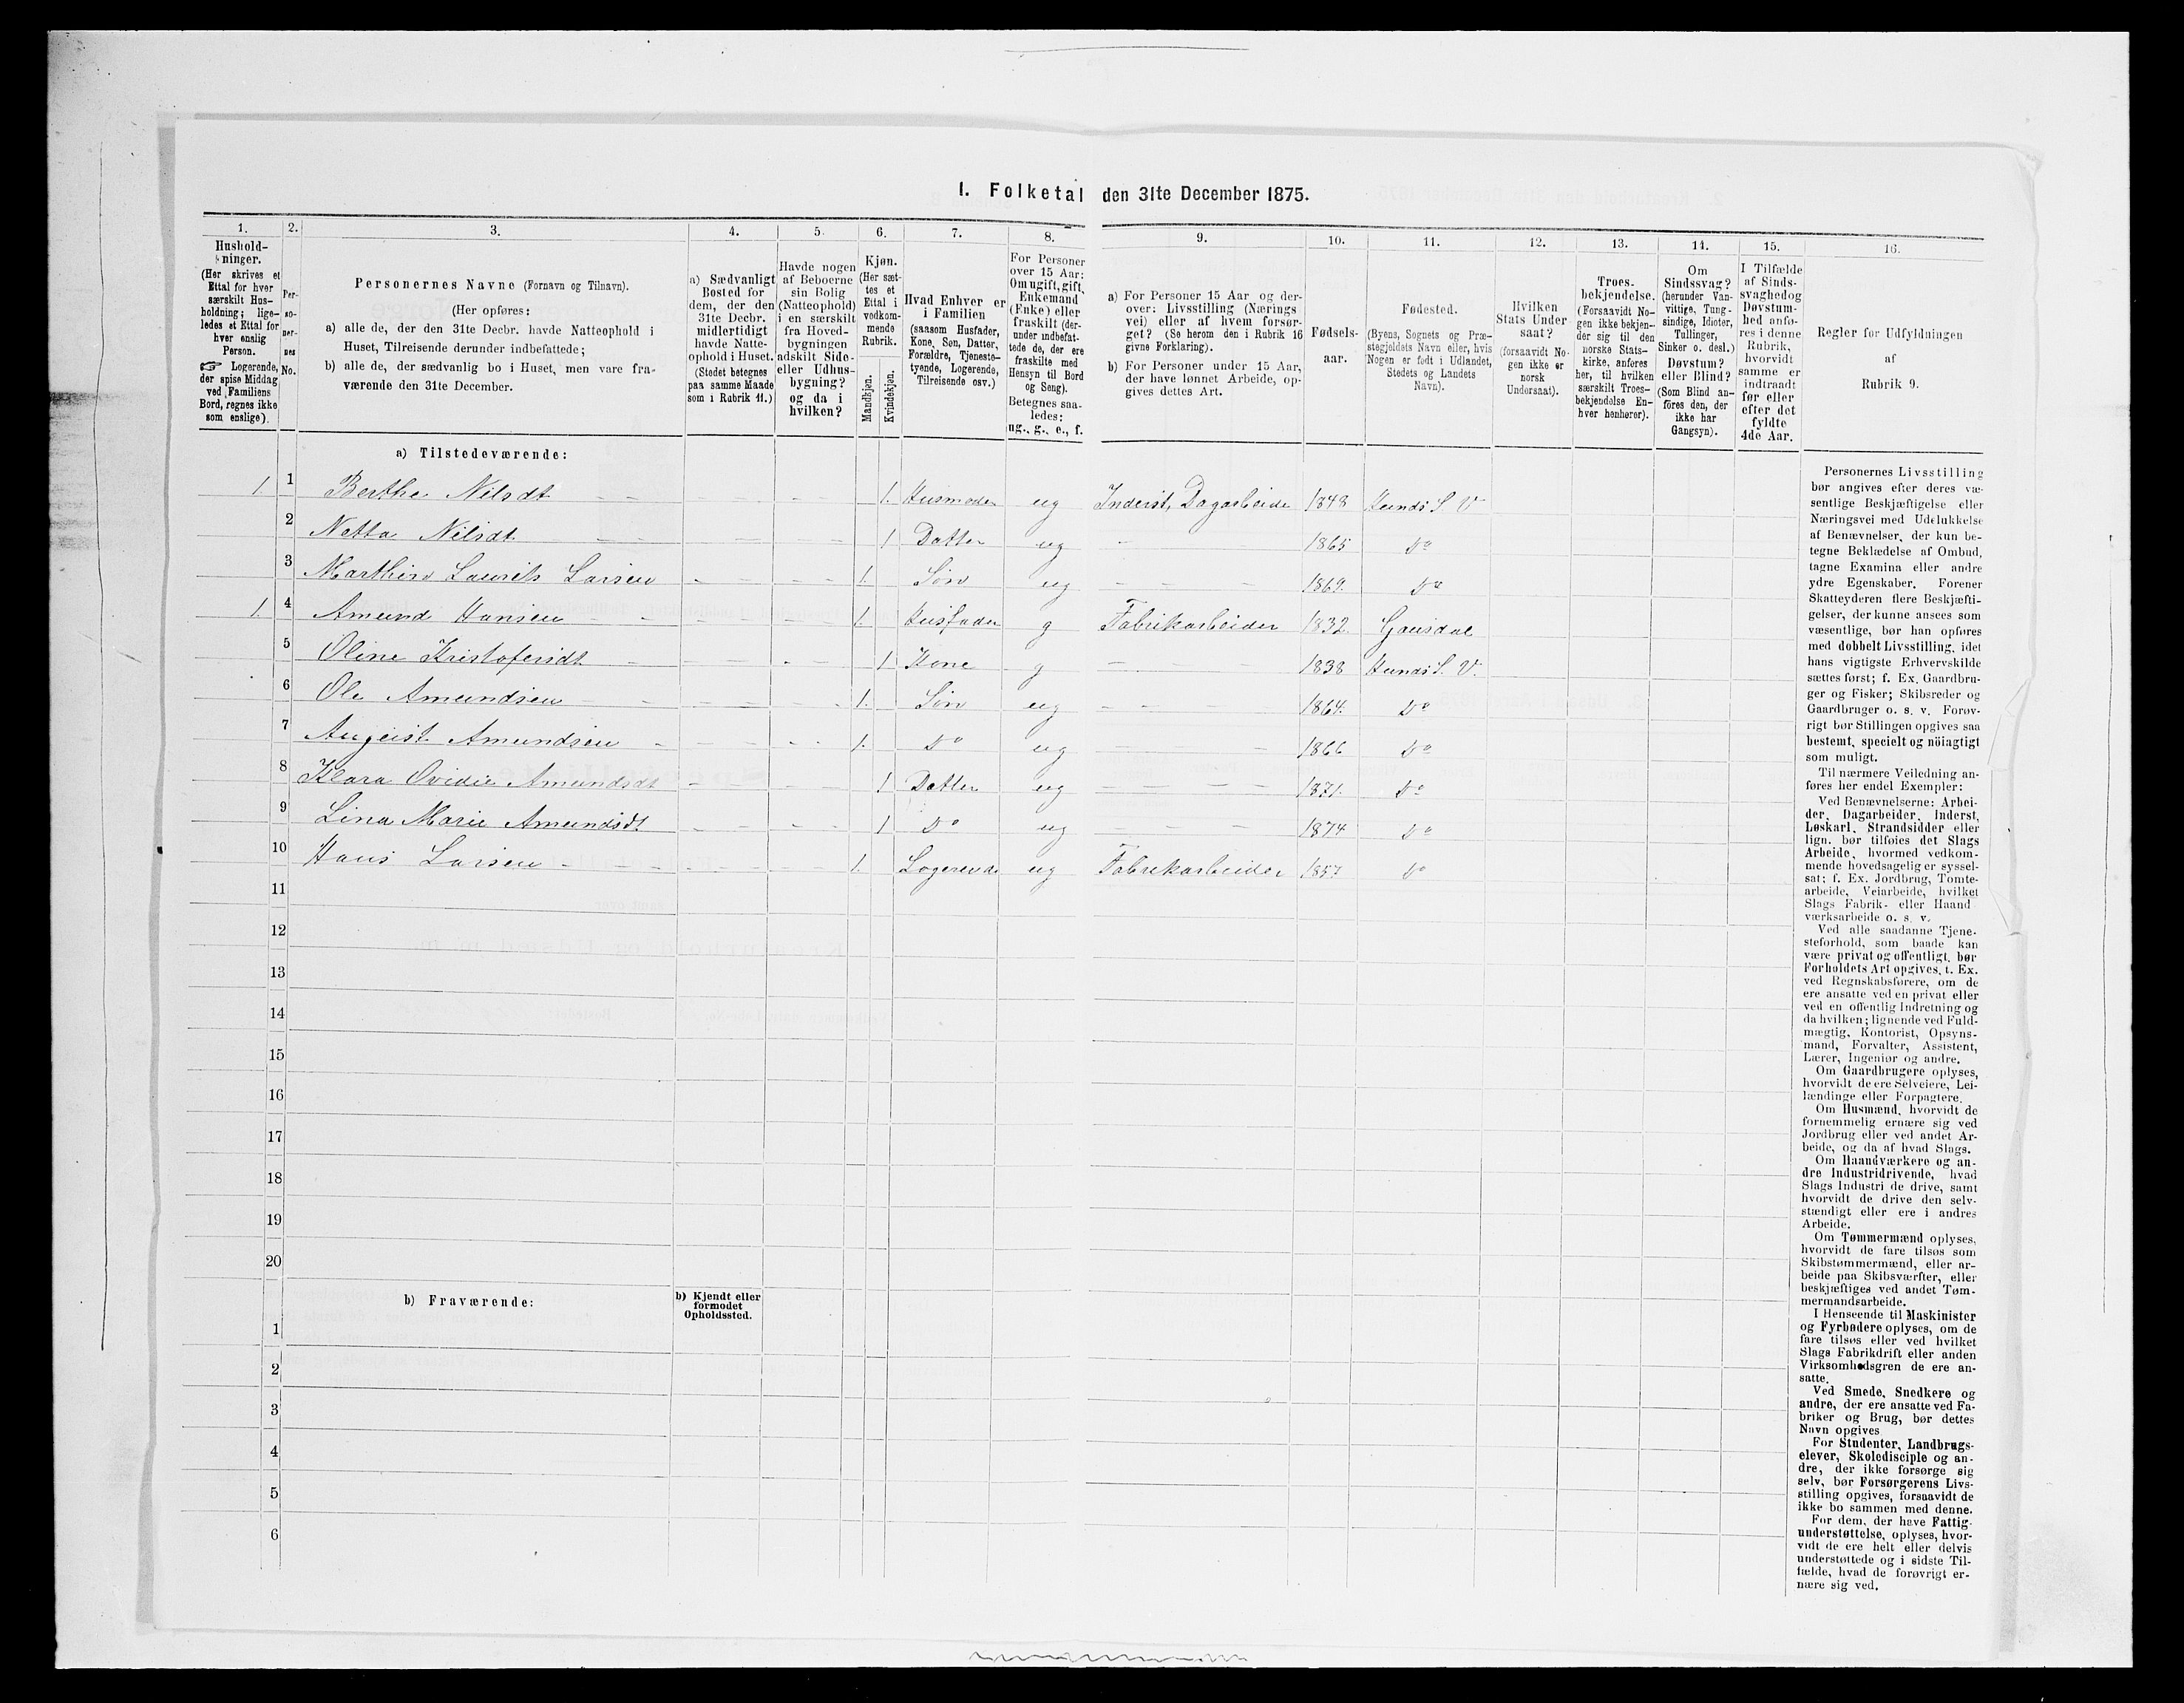 I. Folketal den 31te December 1875.
1. 2. 3. 4. 5. 6. 7. 8. 9. 10. 11. 12. 13. 14. 15. 16.
Hushold-
ninger.
(Her skrives et
Ettal for hver
særskilt Hus-
holdning; lige-
ledes et Ettal for
hver enslig
Person.
☞ Logerende,
der spise Middag
ved Familiens
Bord, regnes ikke
som enslige).
Per-
so-
ner-
nes
No.
Personernes Navne (Fornavn og Tilnavn).
(Her opføres:
a) alle de, der den 31te Decbr. havde Natteophold i
Huset, Tilreisende derunder indbefattede;
b) alle de, der sædvanlig bo i Huset, men vare fra-
værende den 31te December.
a) Sædvanligt
Bosted for
dem, der den
31te Decbr.
midlertidigt
havde Natte-
ophold i Huset.
(Stedet betegnes
paa samme Maade
som i Rubrik 11.)
Havde nogen
af Beboerne
sin Bolig
(Natteophold)
i en særskilt
fra Hoved-
bygningen
adskilt Side-
eller Udhus-
bygning?
og da i
hvilken?
Kjøn.
(Her sæt-
tes et
Ettal i
vedkom-
mende
Rubrik.
Mandkjøn.
Kvindekjøn.
Hvad Enhver er
i Familien
(saasom Husfader,
Kone, Søn, Datter,
Forældre, Tjeneste-
tyende, Logerende,
Tilreisende osv.)
For Personer
over 15 Aar:
Om ugift, gift,
Enkemand
(Enke) eller
fraskilt (der-
under indbefat-
tede de, der ere
fraskilte med
Hensyn til Bord
og Seng).
Betegnes saa-
ledes:
ug., g., e., f.
a) For Personer 15 Aar og der-
over: Livsstilling (Nærings
vei) eller af hvem forsør-
get? (Se herom den i Rubrik 16
givne Forklaring).
b) For Personer under 15 Aar,
der have lønnet Arbeide, op-
gives dettes Art.
Fødsels-
aar.
Fødested.
(Byens, Sognets og Præ-
stegjeldets Navn eller, hvis
Nogen er født i Udlandet,
Stedets og Landets
Navn).
Hvilken
Stats Under
saat?
(forsaavidt No-
gen ikke er
norsk
Undersaat).
Troes-
bekjendelse.
(Forsaavidt No-
gen ikke bekjen-
der sig til den
norske Stats-
kirke, anføres
her, til hvilken
særskilt Troes-
bekjendelse En-
hver henhører).
Om
Sindssvag?
(herunder Van-
vittige, Tung-
sindige, Idioter,
Tullinger,
Sinker o. desl.)
Døvstum?
eller Blind?
(Som Blind an-
föres den, der
ikke har
Gangsyn).
I Tilfælde
af Sinds-
svaghedog
Døvstum-
hed anfø-
res i denne
Rubrik,
hvorvidt
samme er
indtraadt
før eller
efter det
fyldte
4de Aar.
Regler for Udfyldningen
af
Rubrik 9.
a) Tilstedeværende:
1. 1 Berthe Nilsdt 1. Husmoder ug Inderst, Dagarbeide 1848 Hunds S V
2 Netta Nilsdt 1 Datter ug 1865 Do
3 Marthin Laurits Larsen 1. Sön ug 1869. Do
1. 4 Amund Hansen 1. Husfader g Fabrikarbeider 1832. Gausdal
5 Oline Kristofersdt 1 Kone g 1838 Hunds S. V.
6 Ole Amundsen 1. Sön ug 1864. Do
7 August Amundsen 1. Do ug 1866 Do
8 Klara Ovidie Amundsdt 1 Datter ug 1871. Do
9 Lina Marie Amundsdt 1 Do ug 1874 Do
10 Hans Larsen 1. Logerende ug Fabrikarbeider 1857 Do
11
12
13
14
15
16
17
18
19
20
b) Fraværende:
b) Kjendt eller
formodet
Opholdssted.
1
2
3
4
5
6
Personernes Livsstilling
bør angives efter deres væ-
sentlige Beskjæftigelse eller
Næringsvei med Udelukkelse
af Benævnelser, der kun be-
tegne Beklædelse af Ombud,
tagne Examina eller andre
ydre Egenskaber. Forener
Skatteyderen flere Beskjæfti-
gelser, der kunne ansees som
væsentlige, bør han opføres
med dobbelt Livsstilling, idet
hans vigtigste Erhvervskilde
sættes først; f. Ex. Gaardbru-
ger og Fisker; Skibsreder og
Gaardbruger o. s. v. Forøv-
rigt bør Stillingen opgives saa
bestemt, specielt og nöiagtigt
som muligt.
Til nærmere Veiledning an-
føres her endel Exempler:
Ved Benævnelserne: Arbei-
der, Dagarbeider, Inderst,
Løskarl, Strandsidder eller
lign. bør tilføies det Slags
Arbeide, hvormed vedkom-
mende hovedsagelig er syssel-
sat; f. Ex. Jordbrug, Tomte-
arbeide, Veiarbeide, hvilket
Slags Fabrik- eller Haand
værksarbeide o. s. v.
Ved alle saadanne Tjene-
steforhold, som baade kan
være privat og offentligt, bør
Forholdets Art opgives, t. Ex.
ved Regnskabsførere, om de
ere ansatte ved en privat eller
ved en offentlig Indretning og
da hvilken; lignende ved Fuld-
mægtig, Kontorist, Opsyns-
mand, Forvalter, Assistent,
Lærer, Ingeniør og andre.
Om Gaardbrugere oplyses,
hvorvidt de ere Selveiere, Lei-
lændinge eller Forpagtere.
Om Husmænd, hvorvidt de
fornemmelig ernære sig ved
Jordbrug eller ved andet Ar-
beide, og da af hvad Slags.
Om Haandværkere og an-
dre Industridrivende, hvad
Slags Industri de drive, samt
hvorvidt de drive den selv-
stændigt eller ere i andres
Arbeide.
Om Tømmermænd oplyses,
hvorvidt de fare tilsøs som
Skibstømmermænd, eller ar-
beide paa Skibsværfter, eller
beskjæftiges ved andet Tøm-
mermandsarbeide.
I Henseende til Maskinister
og Fyrbødere oplyses, om de
fare tilsøs eller ved hvilket
Slags Fabrikdrift eller anden
Virksomhedsgren de ere an-
satte.
Ved Smede, Snedkere og
andre, der ere ansatte ved Fa-
briker og Brug, bør dettes
Navn opgives
For Studenter, Landbrugs-
elever, Skoledisciple og an-
dre, der ikke forsørge sig
selv, bør Forsørgerens Livs-
stilling opgives, forsaavidt de
ikke bo sammen med denne.
For dem, der have Fattig-
understøttelse, oplyses, hvor-
vidt de ere helt eller delvis
understøttede og i sidste Til-
fælde, hvad de forøvrigt er-
nære sig ved.